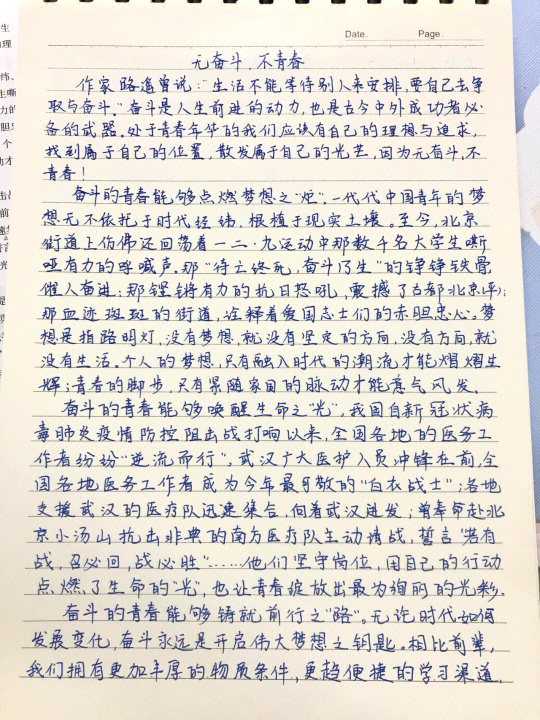 Date Page
无奋斗,不青春
作家路遥曾说:"生活不能等待别人来安排,要自己去争
取与奋斗."奋斗是人生前进的动力,也是古今中外成功者必
备的武器.处于青春年华的我们应该有自己的理想与追求,
找到属于自己的位置,散发属于自己的光芒,因为无奋斗,不
青春!
奋斗的青春能够点燃梦想之"炉".一代代中国青年的梦
想无不依托于时代经纬,根植于现实土壤.至今,北京
街道上仿佛还回荡着一二·九运动中那数千名大学生嘶
哑有力的呼喊声.那"待亡终死,奋斗乃生"的铮铮铁骨
催人奋进;那铿锵有力的抗日怒吼,震撼了古都北平;
那血迹斑斑的街道,诠释着爱国志士们的赤胆忠心.梦
想是指路明灯,没有梦想,就没有坚定的方向,没有方向,就
没有生活.个人的梦想,只有融入时代的潮流才能熠熠生
辉;青春的脚步,只有紧随家国的脉动才能意气风发.
奋斗的青春能够唤醒生命之"光",我国自新冠状病
毒肺炎疫情防控阻击战打响以来,全国各地的医务工
作者纷纷"逆流而行".武汉广大医护人员冲锋在前,全
国各地医务工作者成为今年最可敬的"白衣战士";各地
支援武汉的医疗队迅速集合,向着武汉进发;曾奉命赴北
京小汤山抗击非典的南方医疗队主动请战,誓言"若有
战,召必回,战必胜"……他们坚守岗位,用自己的行动
点燃了生命的"光",也让青春绽放出最为绚丽的光彩.
奋斗的青春能够铸就前行之"路".无论时代如何
发展变化,奋斗永远是开启伟大梦想之钥匙.相比前辈,
我们拥有更加丰厚的物质条件,更趋便捷的学习渠道,